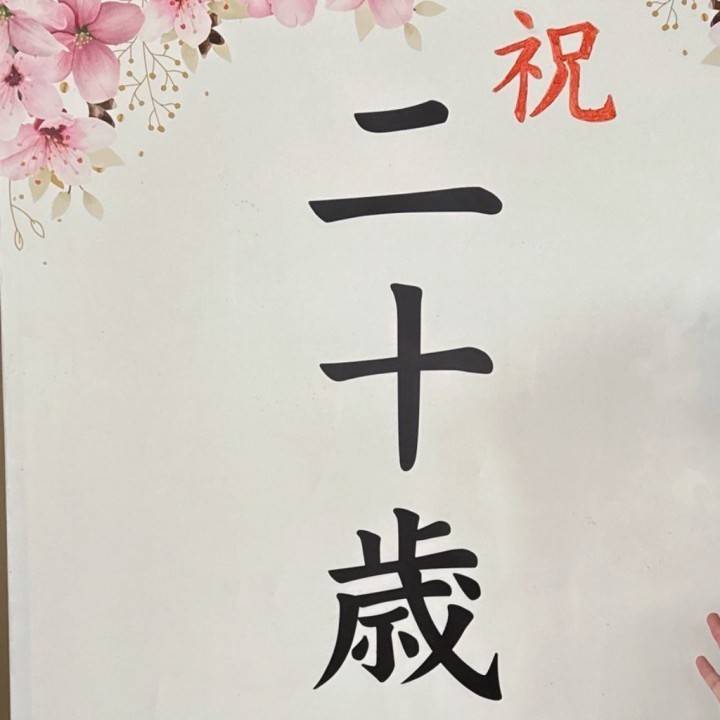 祝
二十歳